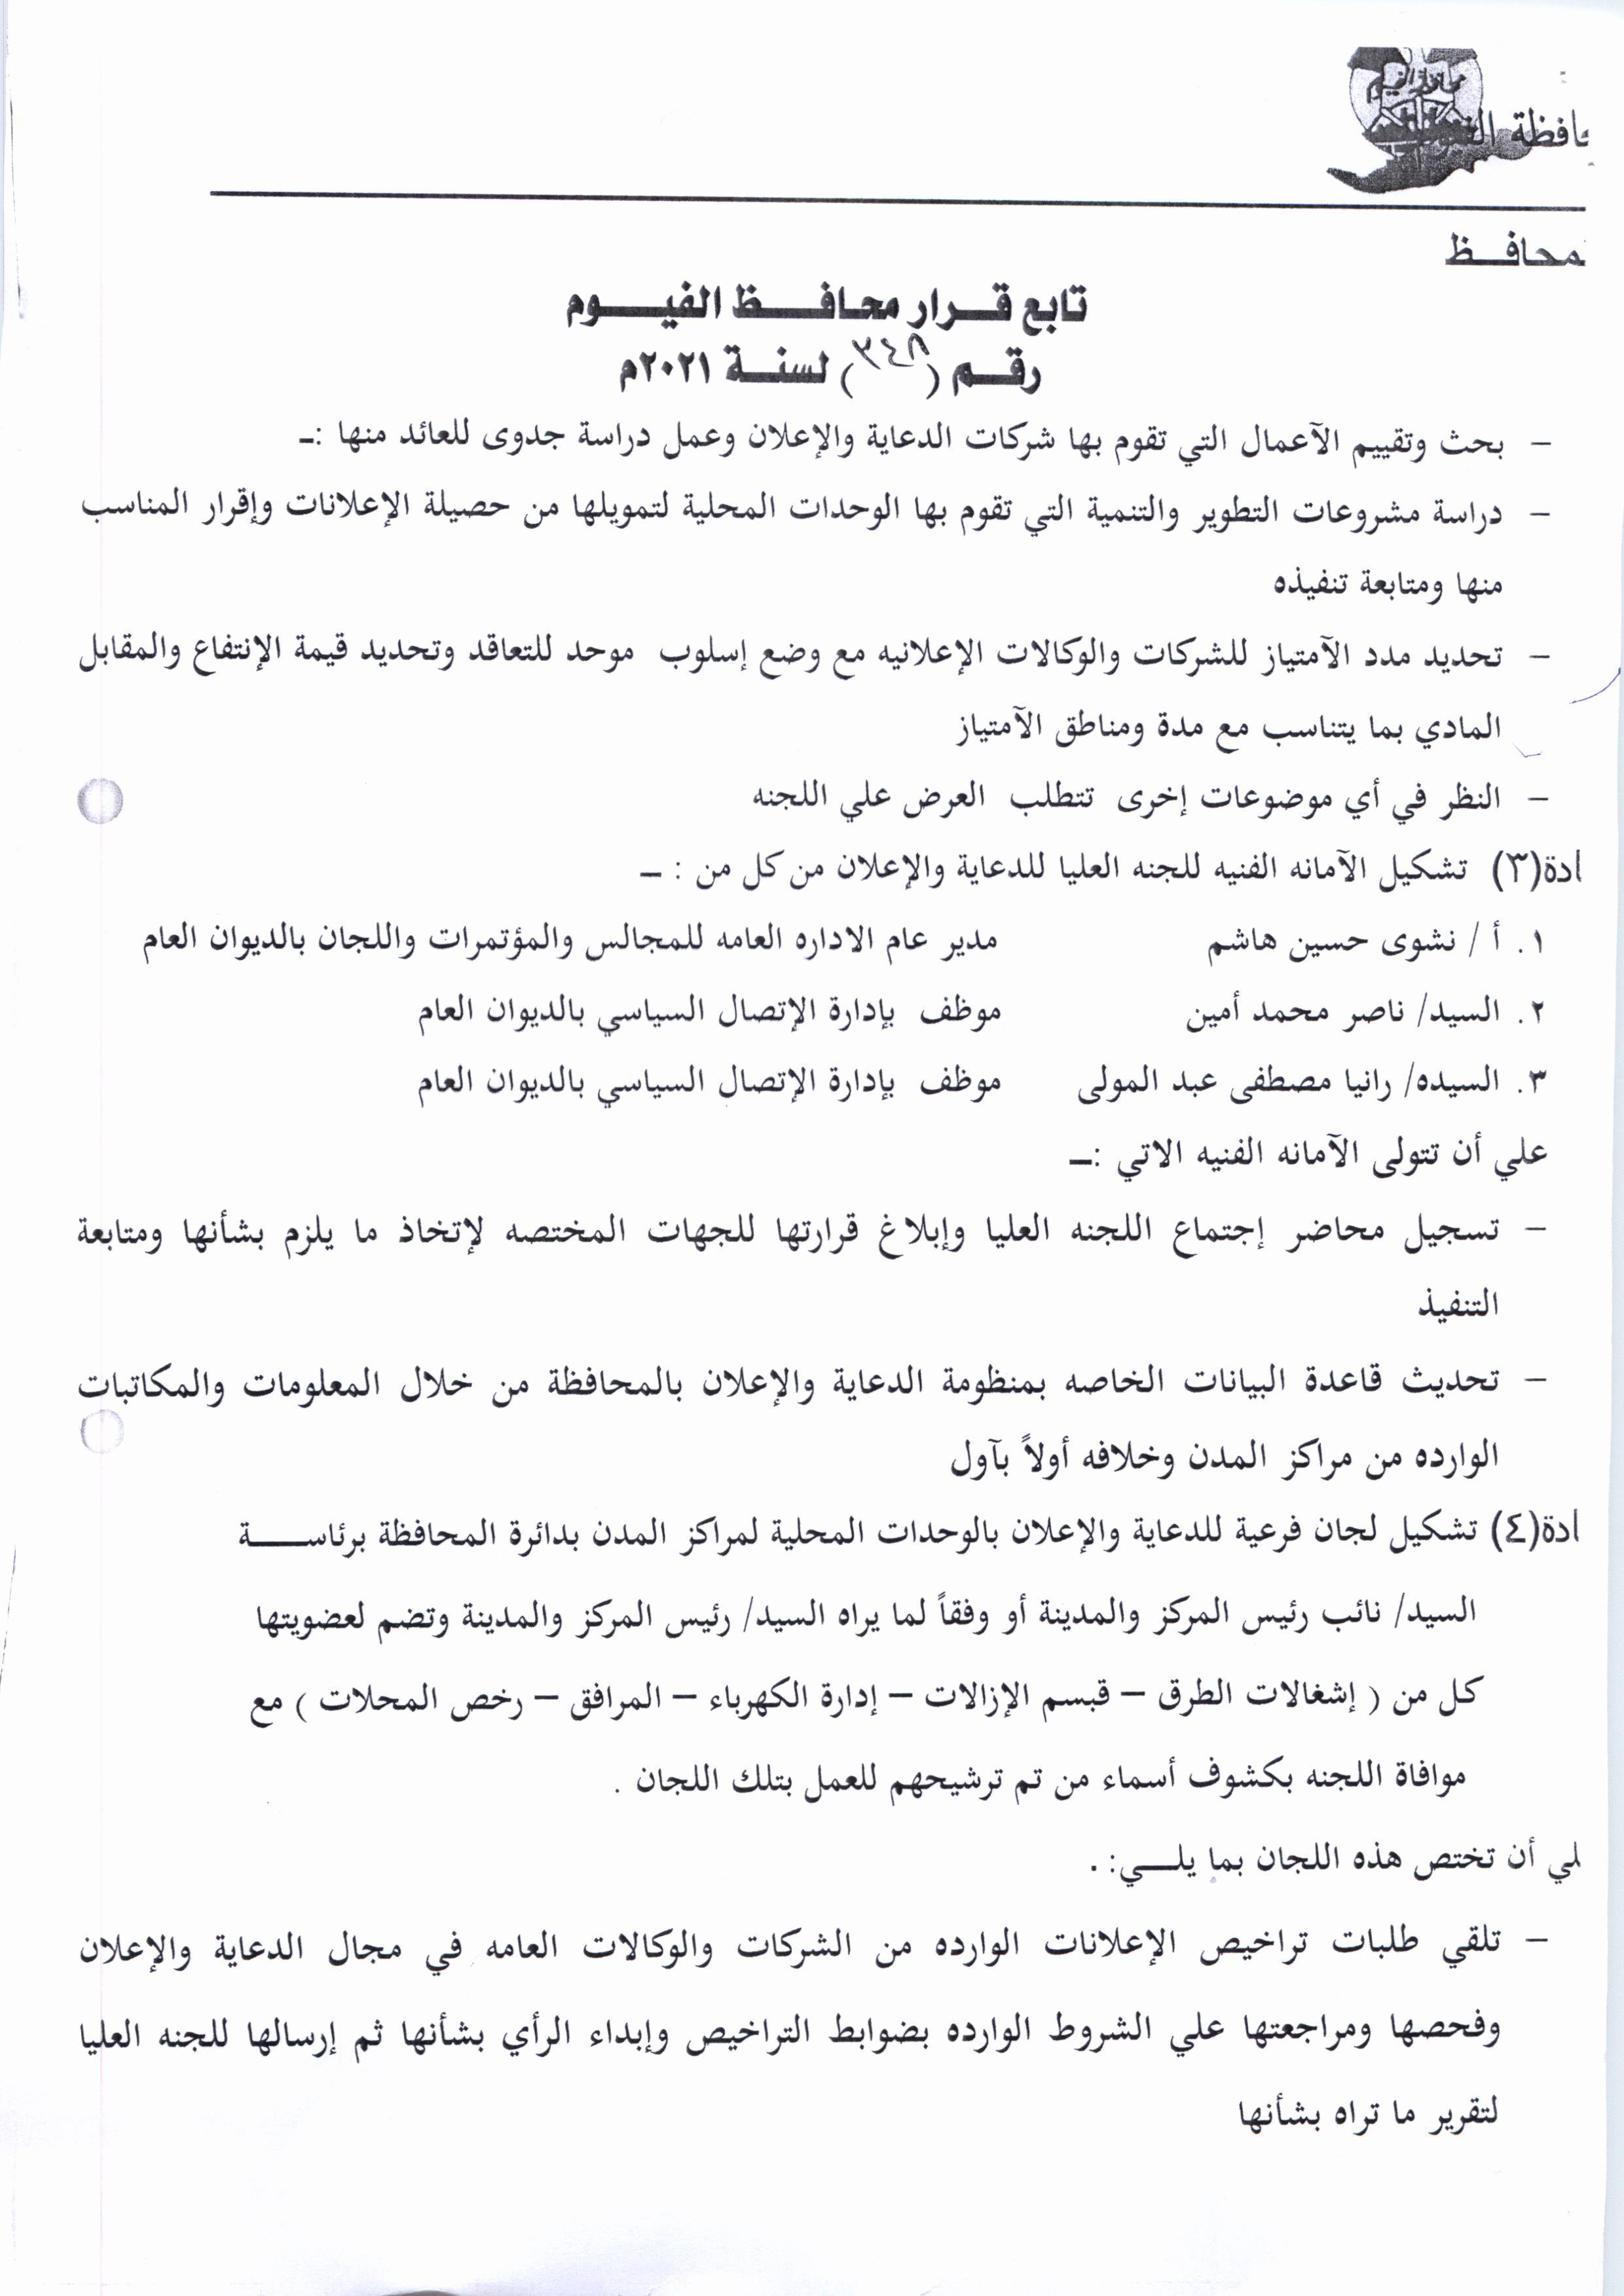 محافظة الفيوم
افظة
محافـــظ
تابع قـــرار محافـــظ الفيـــوم
رقـــم (٣٤٨) لسنـــة ٢٠٢١م
– بحث وتقييم الآعمال التي تقوم بها شركات الدعاية والإعلان وعمل دراسة جدوى للعائد منها :ـ
– دراسة مشروعات التطوير والتنمية التي تقوم بها الوحدات المحلية لتمويلها من حصيلة الإعلانات وإقرار المناسب
منها ومتابعة تنفيذه
– تحديد مدد الآمتياز للشركات والوكالات الإعلانيه مع وضع إسلوب موحد للتعاقد وتحديد قيمة الإنتفاع والمقابل
المادي بما يتناسب مع مدة ومناطق الآمتياز
– النظر في أي موضوعات إخرى تتطلب العرض علي اللجنه
ادة(٣) تشكيل الآمانه الفنيه للجنه العليا للدعاية والإعلان من كل من : ـ
١. أ / نشوى حسين هاشم مدير عام الاداره العامه للمجالس والمؤتمرات واللجان بالديوان العام
٢. السيد/ ناصر محمد أمين موظف بإدارة الإتصال السياسي بالديوان العام
٣. السيده/ رانيا مصطفى عبد المولى موظف بإدارة الإتصال السياسي بالديوان العام
علي أن تتولى الآمانه الفنيه الاتي :ـ
– تسجيل محاضر إجتماع اللجنه العليا وإبلاغ قرارتها للجهات المختصه لإتخاذ ما يلزم بشأنها ومتابعة
التنفيذ
– تحديث قاعدة البيانات الخاصه بمنظومة الدعاية والإعلان بالمحافظة من خلال المعلومات والمكاتبات
الوارده من مراكز المدن وخلافه أولاً بآول
ادة(٤) تشكيل لجان فرعية للدعاية والإعلان بالوحدات المحلية لمراكز المدن بدائرة المحافظة برئاســـة
السيد/ نائب رئيس المركز والمدينة أو وفقاً لما يراه السيد/ رئيس المركز والمدينة وتضم لعضويتها
كل من ( إشغالات الطرق – قبسم الإزالات – إدارة الكهرباء – المرافق – رخص المحلات ) مع
موافاة اللجنه بكشوف أسماء من تم ترشيحهم للعمل بتلك اللجان .
لي أن تختص هذه اللجان بما يلـــي: .
– تلقي طلبات تراخيص الإعلانات الوارده من الشركات والوكالات العامه في مجال الدعاية والإعلان
وفحصها ومراجعتها علي الشروط الوارده بضوابط التراخيص وإبداء الرأي بشأنها ثم إرسالها للجنه العليا
لتقرير ما تراه بشأنها